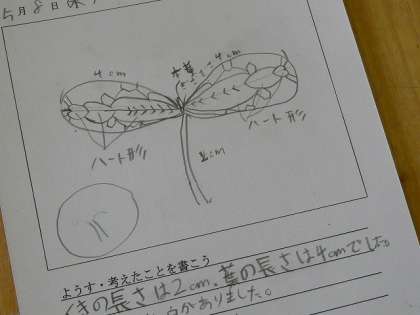 5月8日
4cm
本葉
4cm
ハート形
ハート形
2cm
ようす・考えたことを書こう
くきの長さは2cm.葉の長さは4cmでした。
がありました。